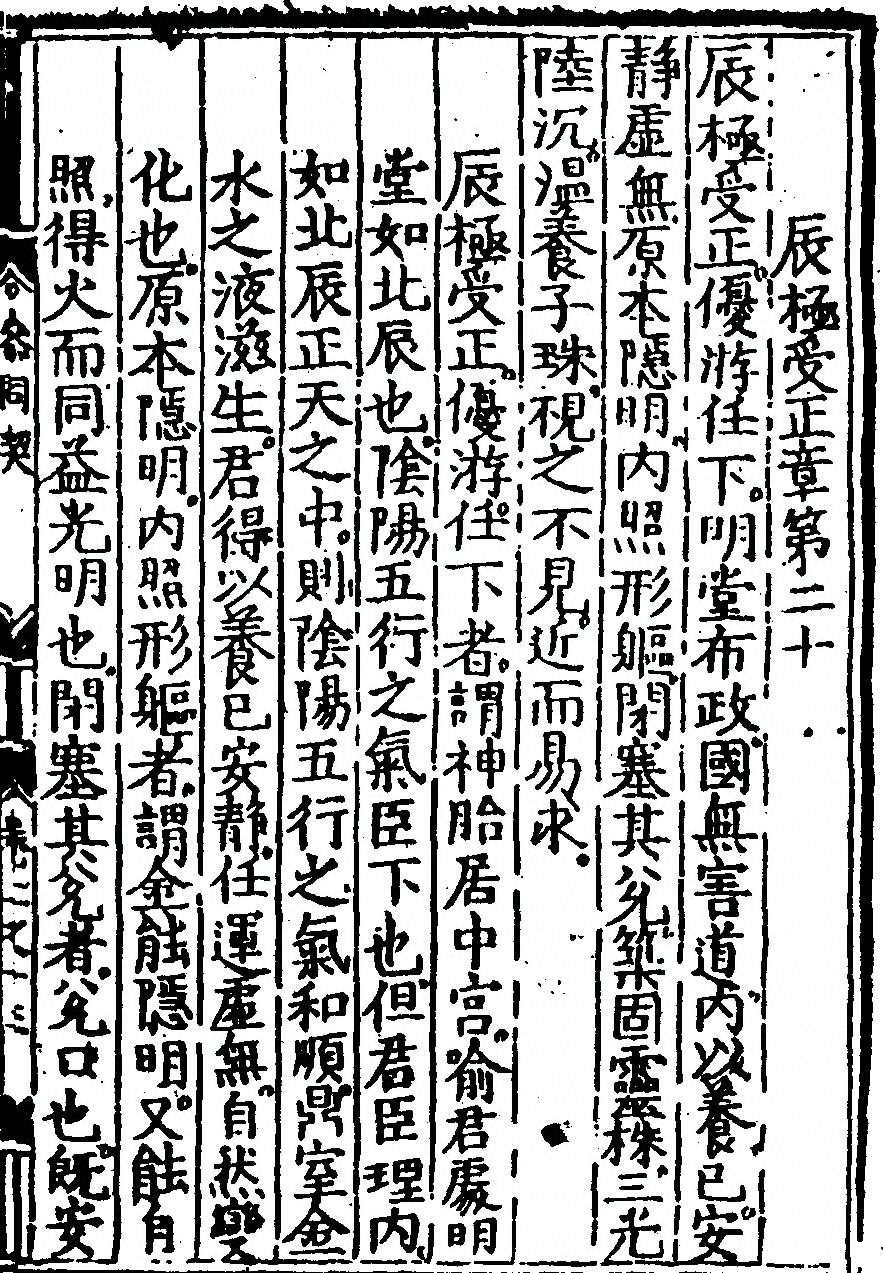 辰極受正章第二十
辰極受正優游任下明堂布政國無害道内以養已安
静虛無原本隱明内照形軀閉塞其兊築固靈株三光
陸沉溫養子珠視之不見近而易求
辰極受正優游任下者謂神胎居中宫喻君處明
堂如北辰也陰陽五行之氣臣下也但君臣理内
如北辰正天之中則陰陽五行之氣和順鼎室金
水之液滋生君得以養已安静任運虛無自然變
化也原本隱明内照形軀者謂金能隱明又能自
照得火而同益光明也閉塞其兊者兊口也既安
同契